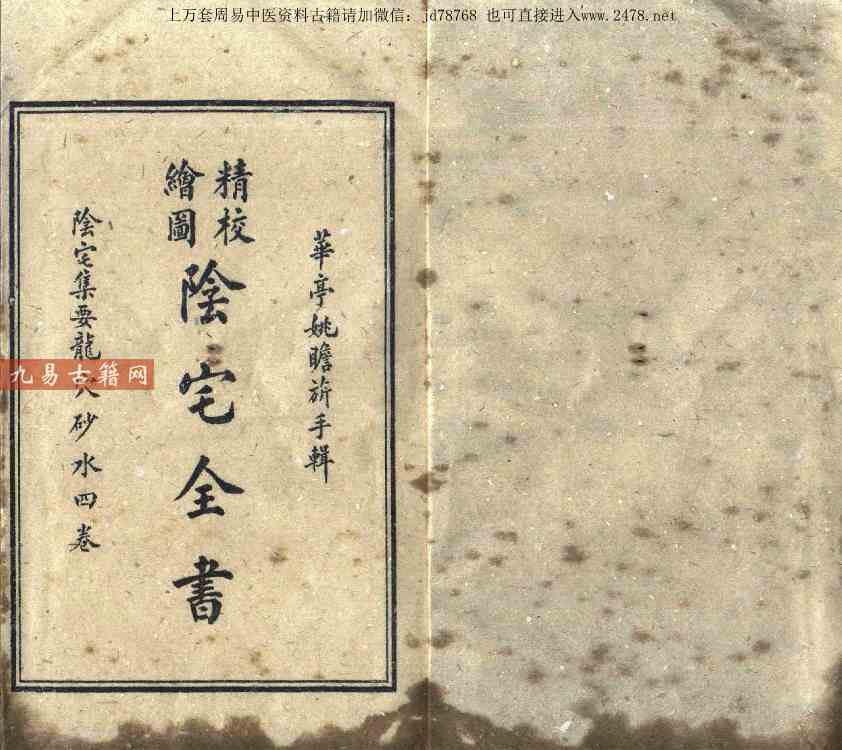 上万套周易中医资料古籍请加微信：jd78768 也可直接进入www.2478.net
華亭姚瞻旂手輯
精校
繪圖
陰宅全書
陰宅集要龍穴砂水四卷
九易古籍网